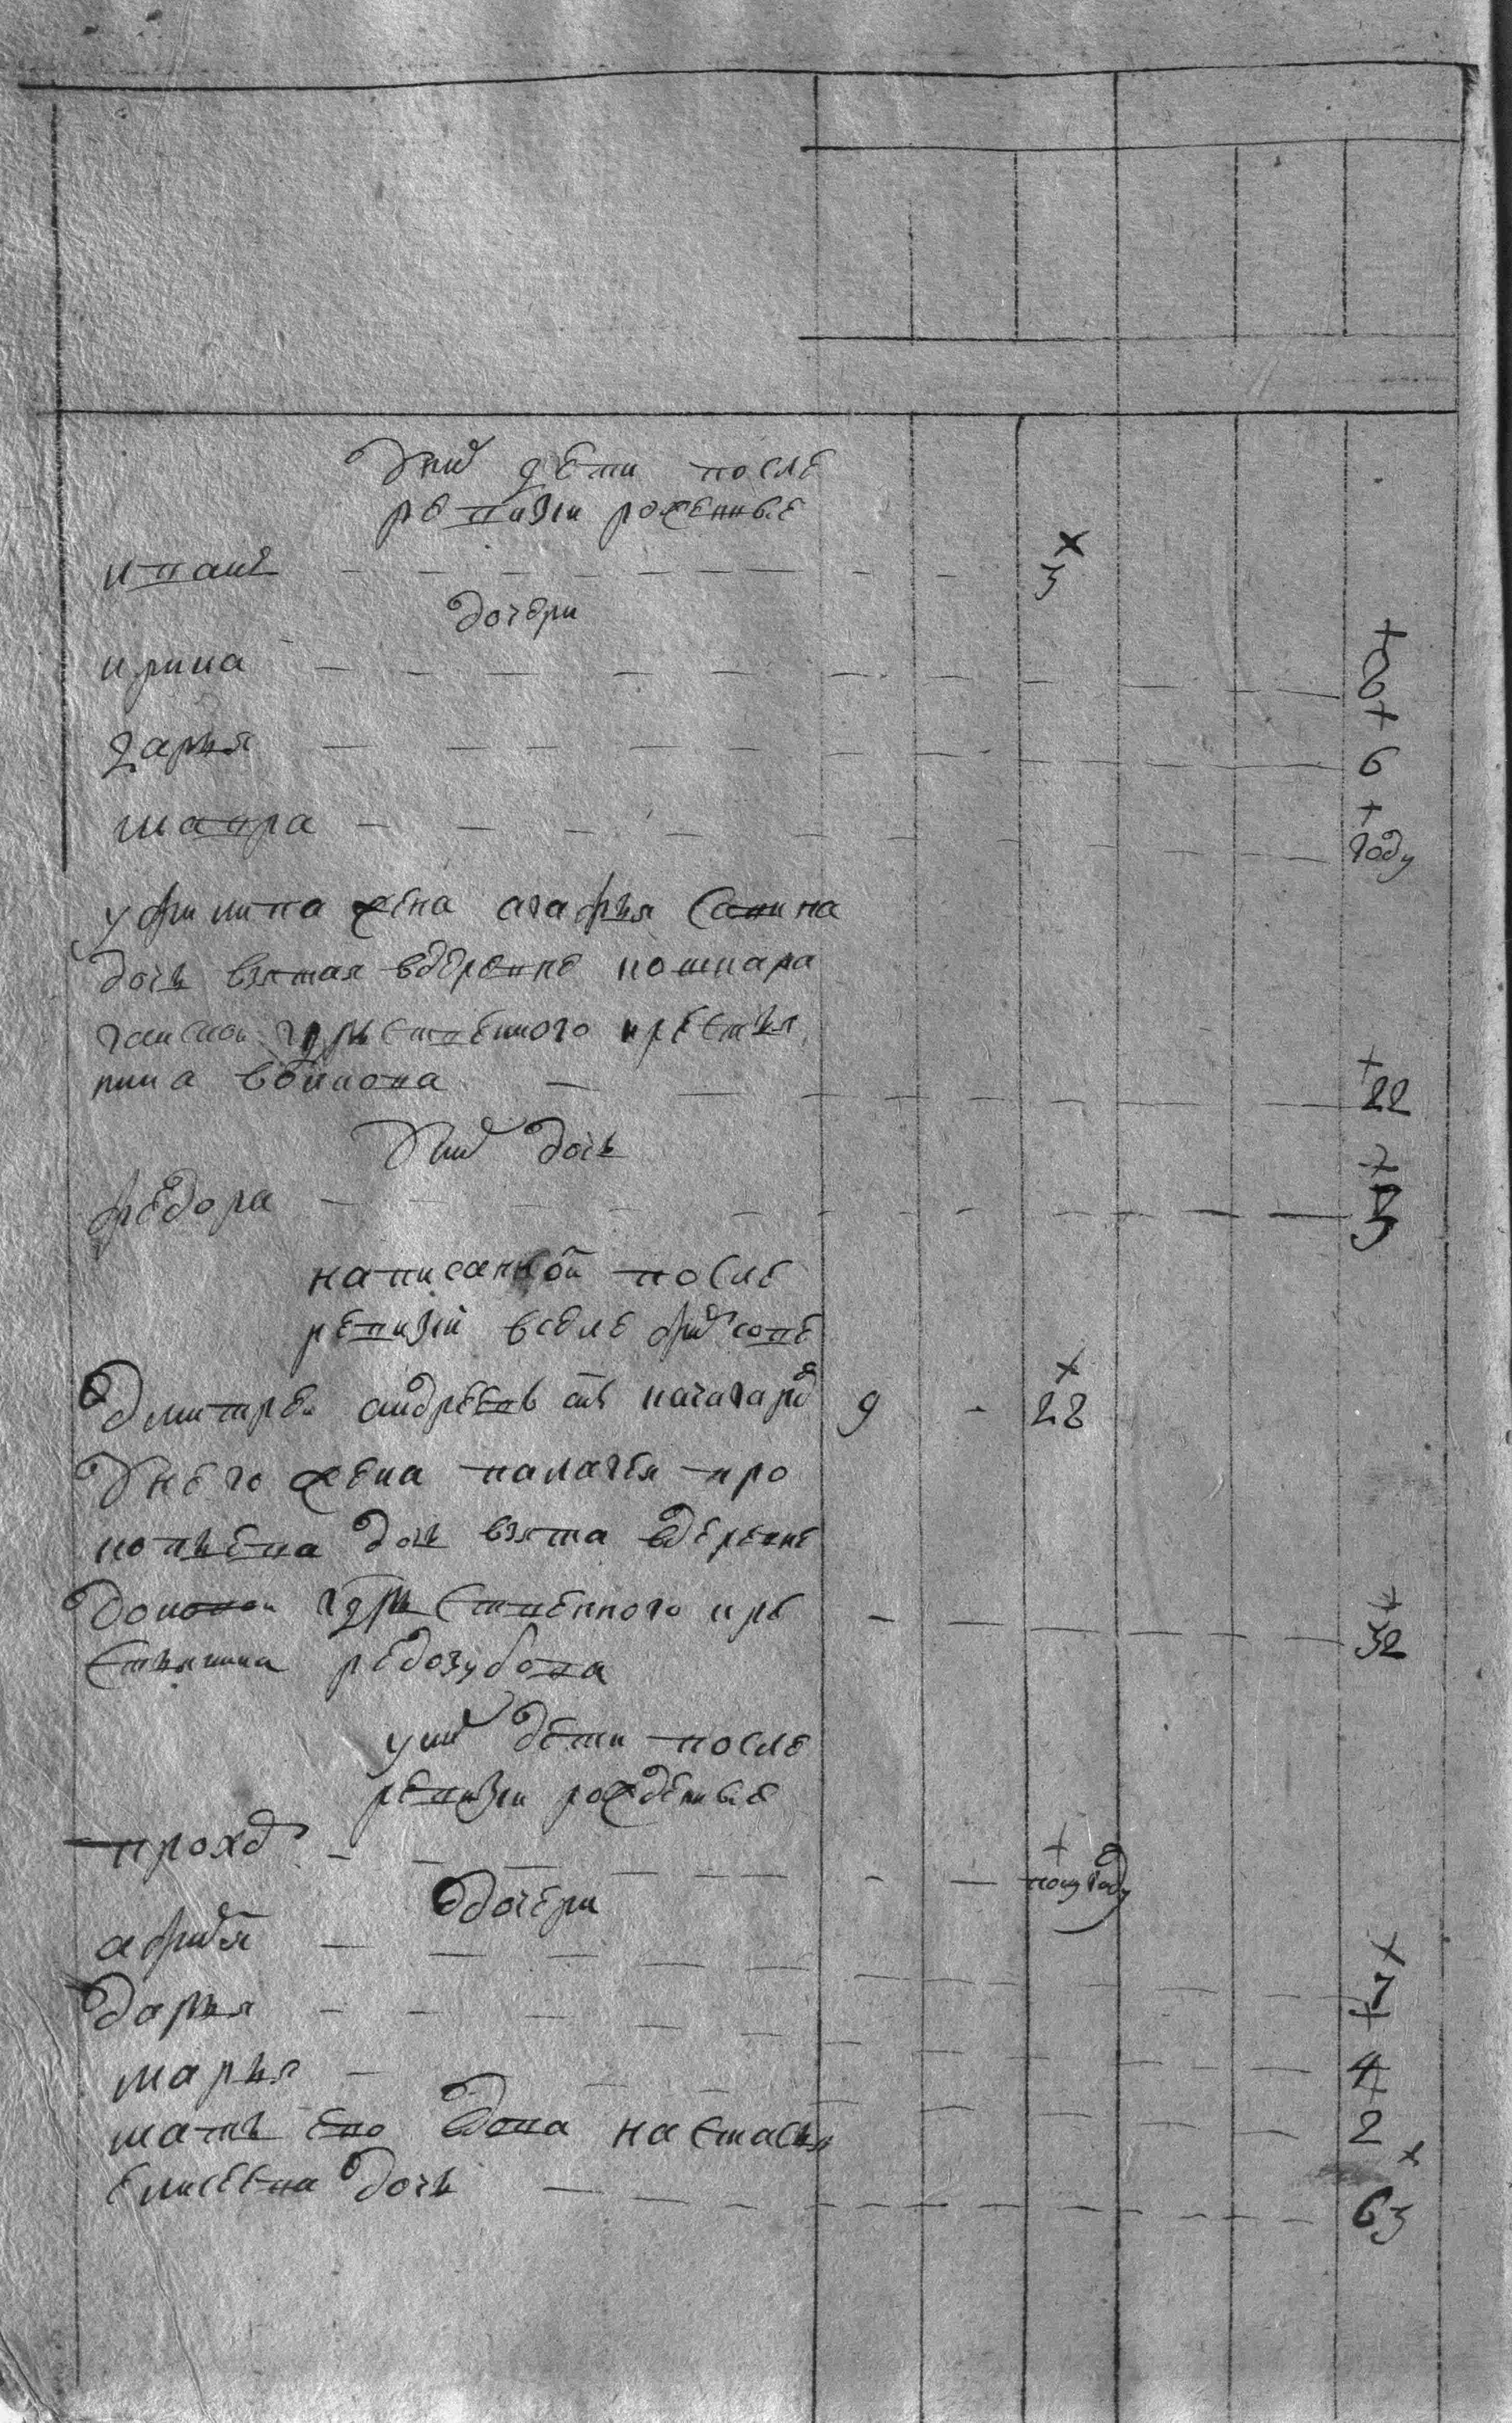 У них дети после
ревизии роженые
иван 3
дочери
ирина 8
дарья 6
мавра году
у филипа жена агафья савина
дочь взятая в деревне
государственного крестья
нина 22
У них дочь
федора 5
написанной после
ревизии в селе
Дмитрей андреев 9 28
У него жена палагея про
копьева дочь взята в деревне
государственного кре
стьянина редозубова 32
у них дети после
ревизи рожденные
прохор полугоду
дочери
афимья 7
дарья 4
марья 2
мать ево вдова настасья
елисеева дочь 63